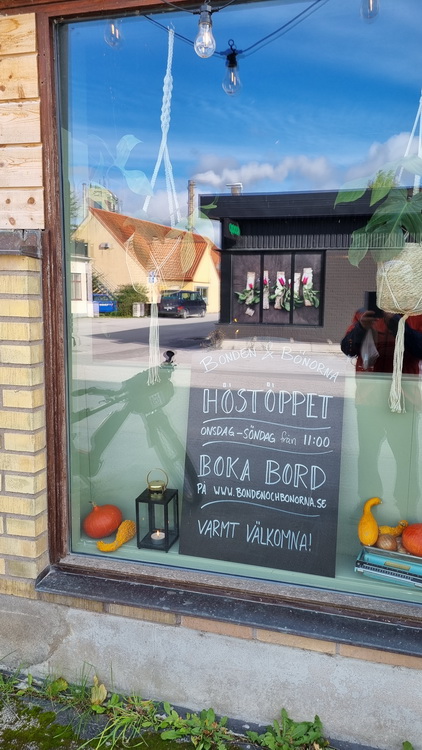 BONDEN & BÖNORNA
HÖSTÖPPET
ONSDAG-SÖNDAG från 11:00
BOKA BORD
PÅ WWW.BONDENOCHBONORNA.SE
VARMT VÄLKOMNA!